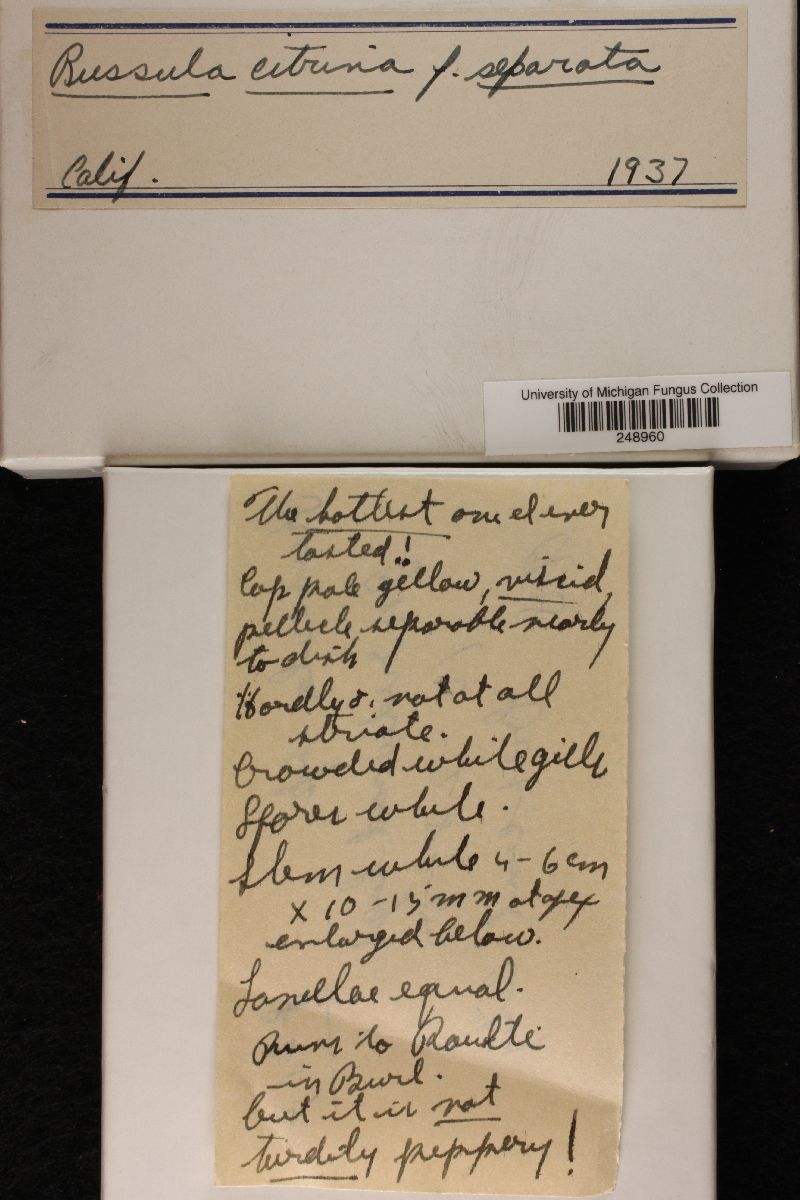 Russula citrina f. separata
Calif. 1937
University of Michigan Fungus Collection
248960
The hottest one I ever
tasted!
Cap pale yellow, viscid,
pellicle separable nearly
to disk
Hardly or not at all
striate.
Crowded white gills
Spores white.
Stem white 4-6 cm
x 10-15 mm at apex
enlarged below.
Lamellae equal.
Runs to
in Burl.
but it is not
tardily peppery!